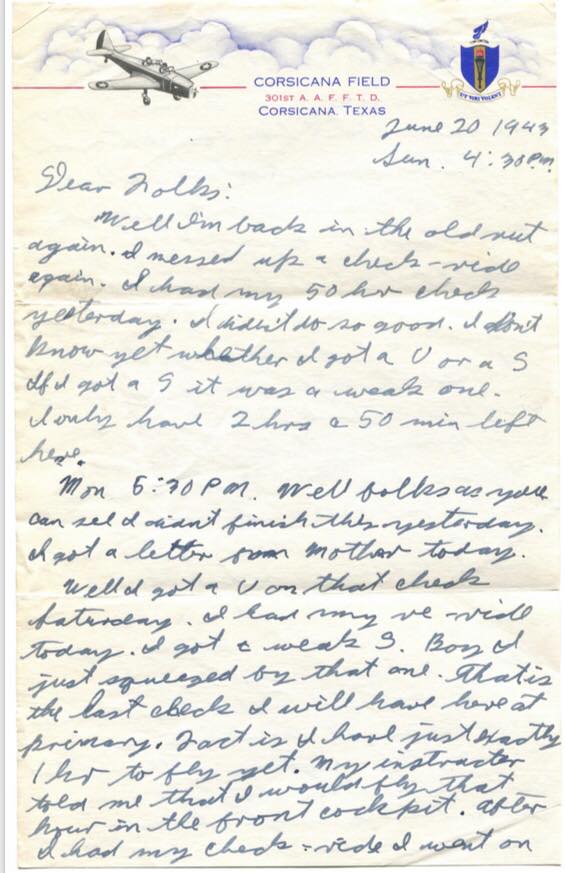 CORSICANA FIELD
301ST A. A. F. F. T. D.
CORSICANA, TEXAS
UT VIRI VOLENT
June 20 1943
Sun. 4:30 P.M.
Dear Folks:
Well I'm back in the old rut
again. I messed up a check-ride
again. I had my 50 hr check
yesterday. I didn't do so good. I don't
know yet whether I got a U or a S
If I got a S it was a weak one.
I only have 2 hrs & 50 min left
here.
Mon 5:30 P M. Well folks as you
can see I didn't finish this yesterday.
I got a letter from Mother today.
Well I got a U on that check
Saturday. I had my re-ride
today. I got a weak S. Boy I
just squeezed by that one. That is
the last check I will have here at
primary. Fact is I have just exactly
1 hr to fly yet. My instructor
told me that I would fly that
hour in the front cockpit. After
I had my check-ride I went on